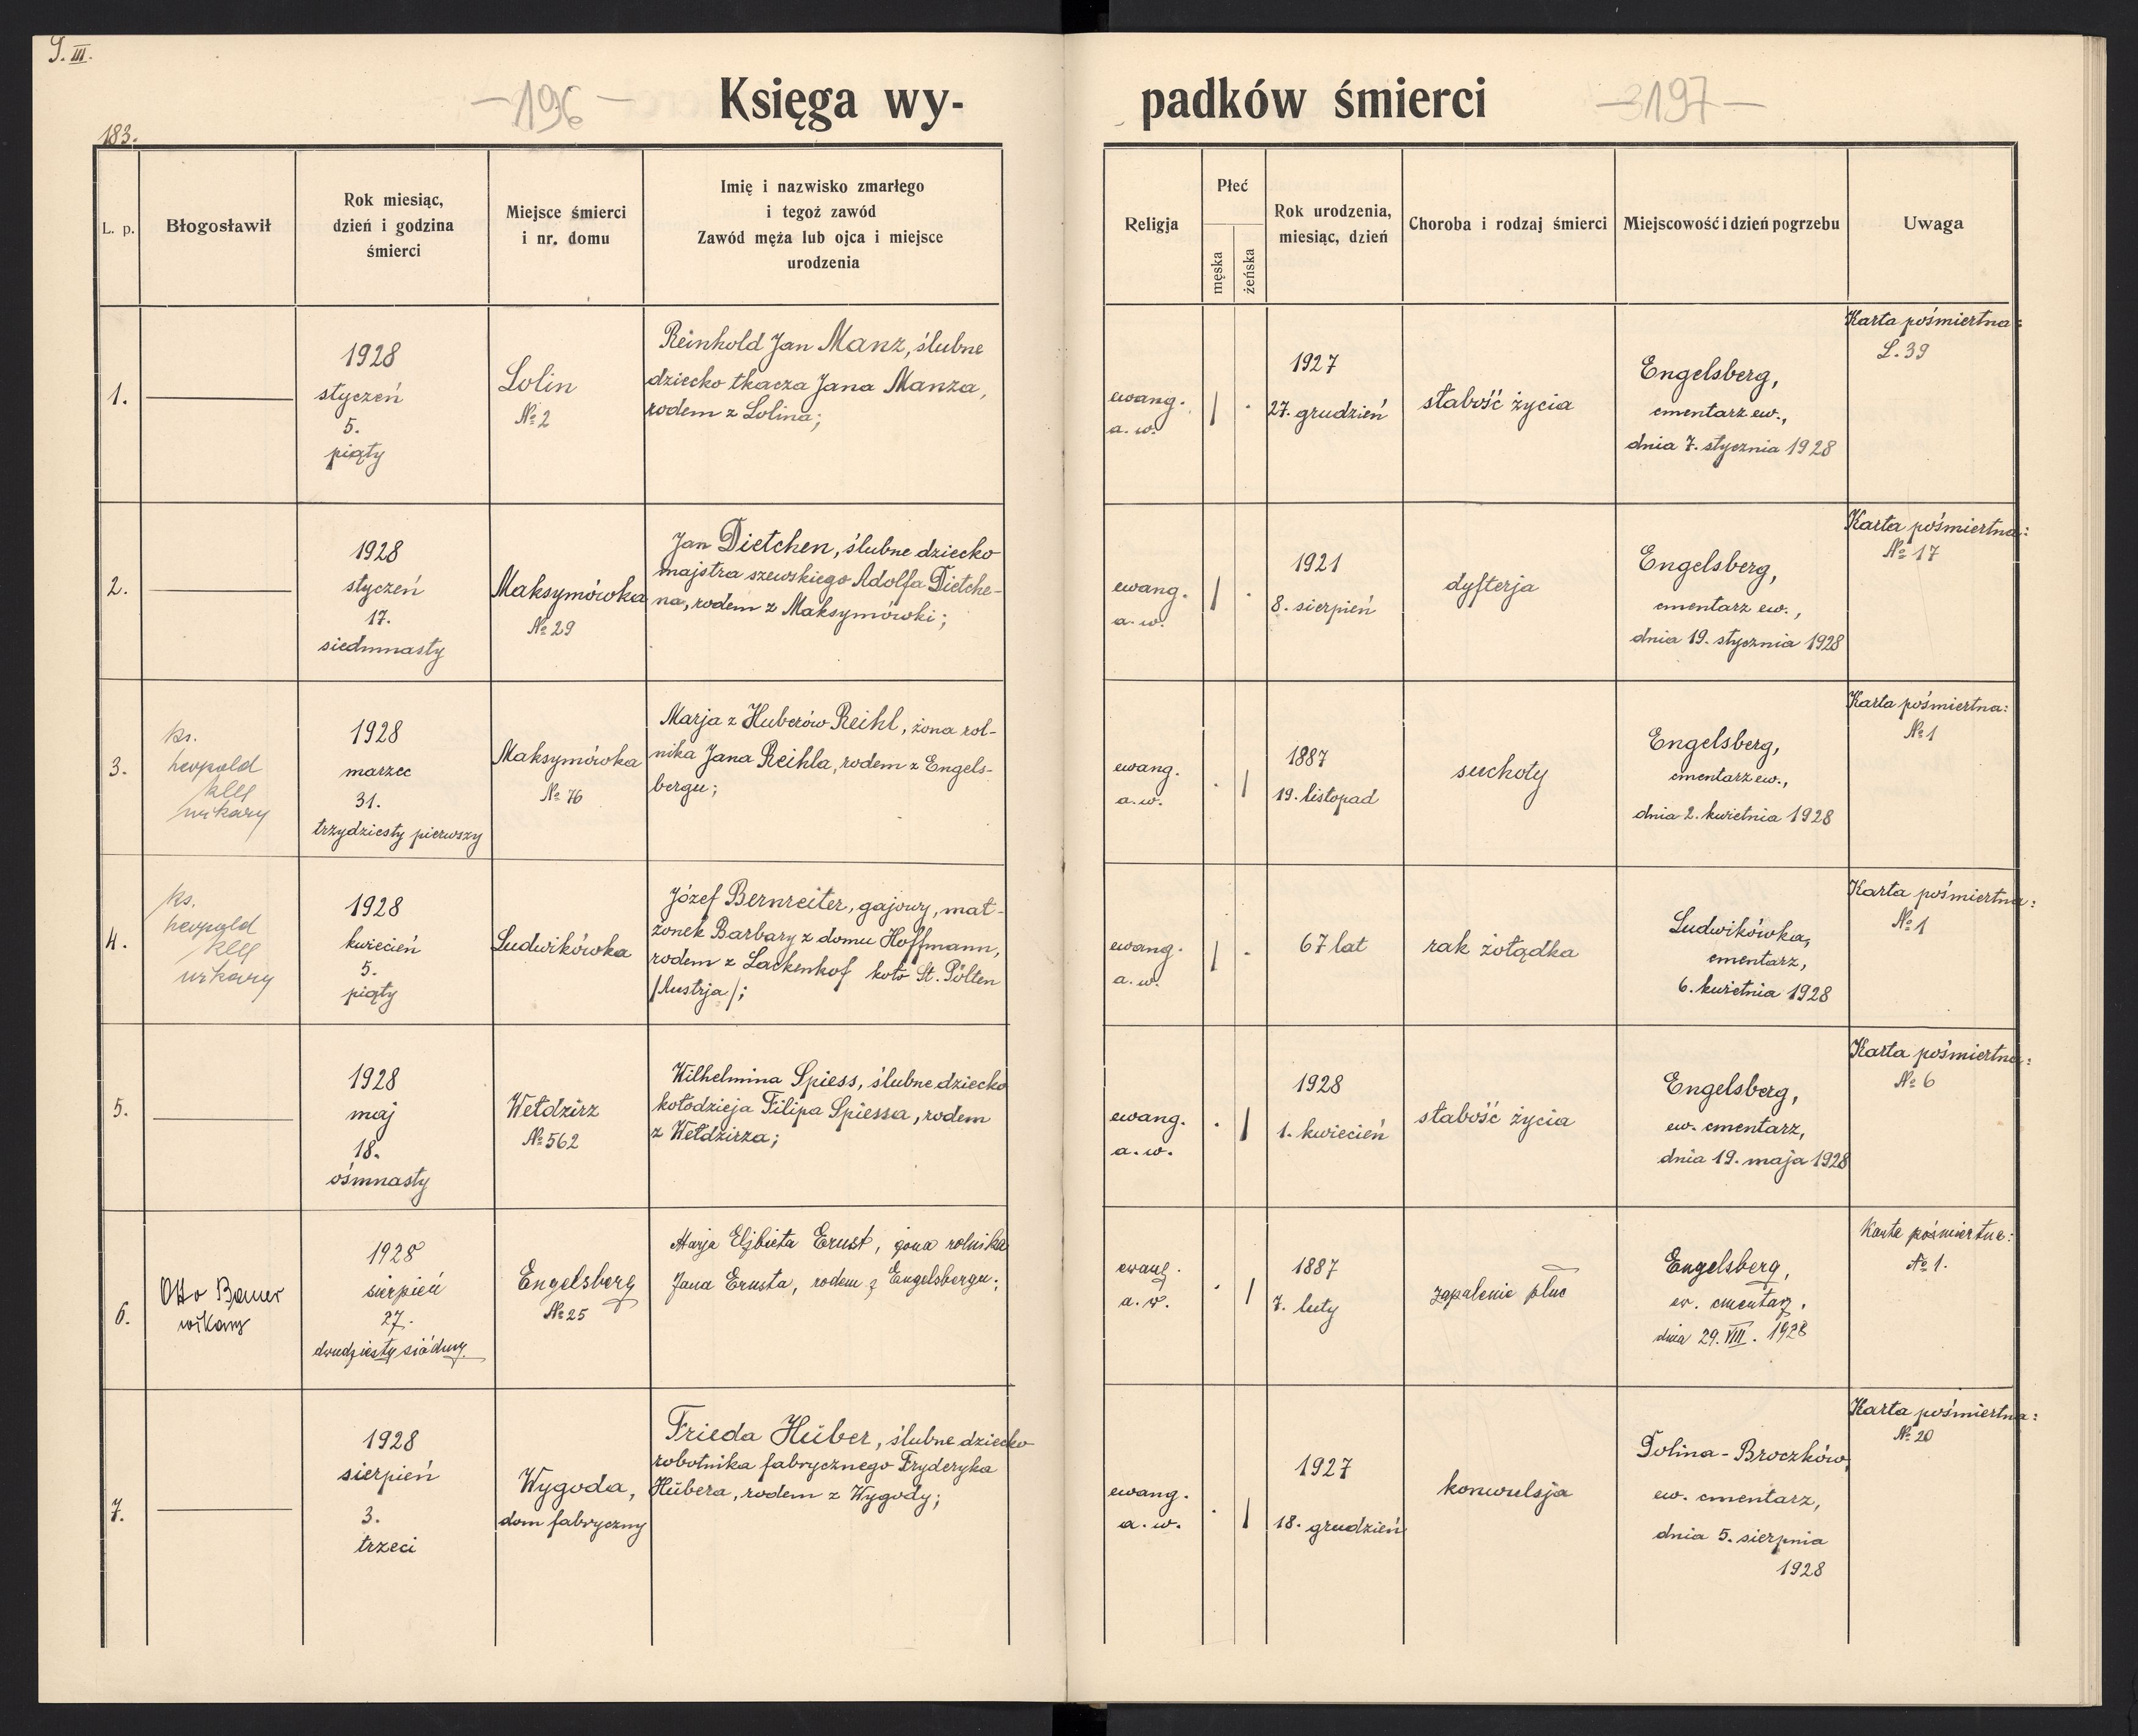 S. III.
— 196 —
Księga wy-
padków śmierci
— 197 —
183.
L. p.
Błogosławił
Rok miesiąc,
dzień i godzina
śmierci
Miejsce śmierci
i nr. domu
Imię i nazwisko zmarłego
i tegoż zawód
Zawód męża lub ojca i miejsce
urodzenia
Religja
Płeć
męska
żeńska
Rok urodzenia,
miesiąc, dzień
Choroba i rodzaj śmierci
Miejscowość i dzień pogrzebu
Uwaga
1.
1928
styczeń
5.
piąty
Lolin
№ 2
Reinhold Jan Manz, ślubne
dziecko tkacza Jana Manza,
rodem z Lolina;
ewang.
a. w.
1927
27. grudzień
słabość życia
Engelsberg,
cmentarz ew.,
dnia 7. stycznia 1928
Karta pośmiertna:
L. 39
2.
1928
styczeń
17.
siedmnasty
Maksymówka
№ 29
Jan Dietchen, ślubne dziecko
majstra szewskiego Adolfa Dietche-
na, rodem z Maksymówki;
ewang.
a. w.
1921
8. sierpień
dyfterja
Engelsberg,
cmentarz ew.,
dnia 19. stycznia 1928
Karta pośmiertna:
№ 17
3.
ks.
Leopold
wikary
1928
marzec
31.
trzydziesty pierwszy
Maksymówka
№ 76
Marja z Huberów Reihl, żona rol-
nika Jana Reihla, rodem z Engels-
bergu;
ewang.
a. w.
1887
19. listopad
suchoty
Engelsberg,
cmentarz ew.,
dnia 2. kwietnia 1928
Karta pośmiertna:
№ 1
4.
ks.
Leopold
wikary
1928
kwiecień
5.
piąty
Ludwikówka
Józef Bernreiter, gajowy, mał-
żonek Barbary z domu Hoffmann,
rodem z Lackenhof koło St. Pölten
/Austrja/;
ewang.
a. w.
67 lat
rak żołądka
Ludwikówka,
cmentarz,
6. kwietnia 1928
Karta pośmiertna:
№ 1
5.
1928
maj
18.
ośmnasty
Wełdzirz
№ 562
Wilhelmina Spiess, ślubne dziecko
kołodzieja Filipa Spiessa, rodem
z Wełdzirza;
ewang.
a. w.
1928
1. kwiecień
słabość życia
Engelsberg,
ew. cmentarz,
dnia 19. maja 1928
Karta pośmiertna:
№ 6
6.
Otto Bauer
wikary
1928
sierpień
27.
dwudziesty siódmy
Engelsberg
№ 25
Marja Elżbieta Ernst, żona rolnika
Jana Ernsta, rodem z Engelsbergu;
ewang.
a. w.
1887
7. luty
zapalenie płuc
Engelsberg,
ew. cmentarz,
dnia 29. VIII. 1928
Karta pośmiertna:
№ 1.
7.
1928
sierpień
3.
trzeci
Wygoda,
dom fabryczny
Frieda Hüber, ślubne dziecko
robotnika fabrycznego Fryderyka
Hübera, rodem z Wygody;
ewang.
a. w.
1927
18. grudzień
konwulsja
Dolina-Broczków,
ew. cmentarz,
dnia 5. sierpnia
1928
Karta pośmiertna:
№ 20